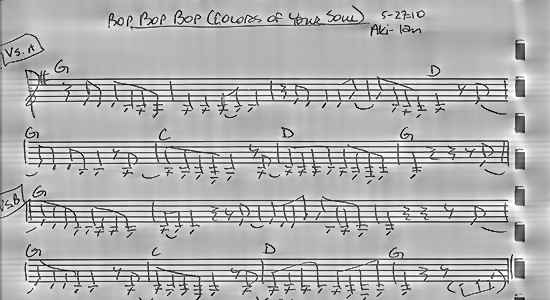 Bop Bop Bop (Colors of Your Soul) 5-27-10
Aki-Ian
Vs. A
G D
G C D G
Vs. B
G
G C D G